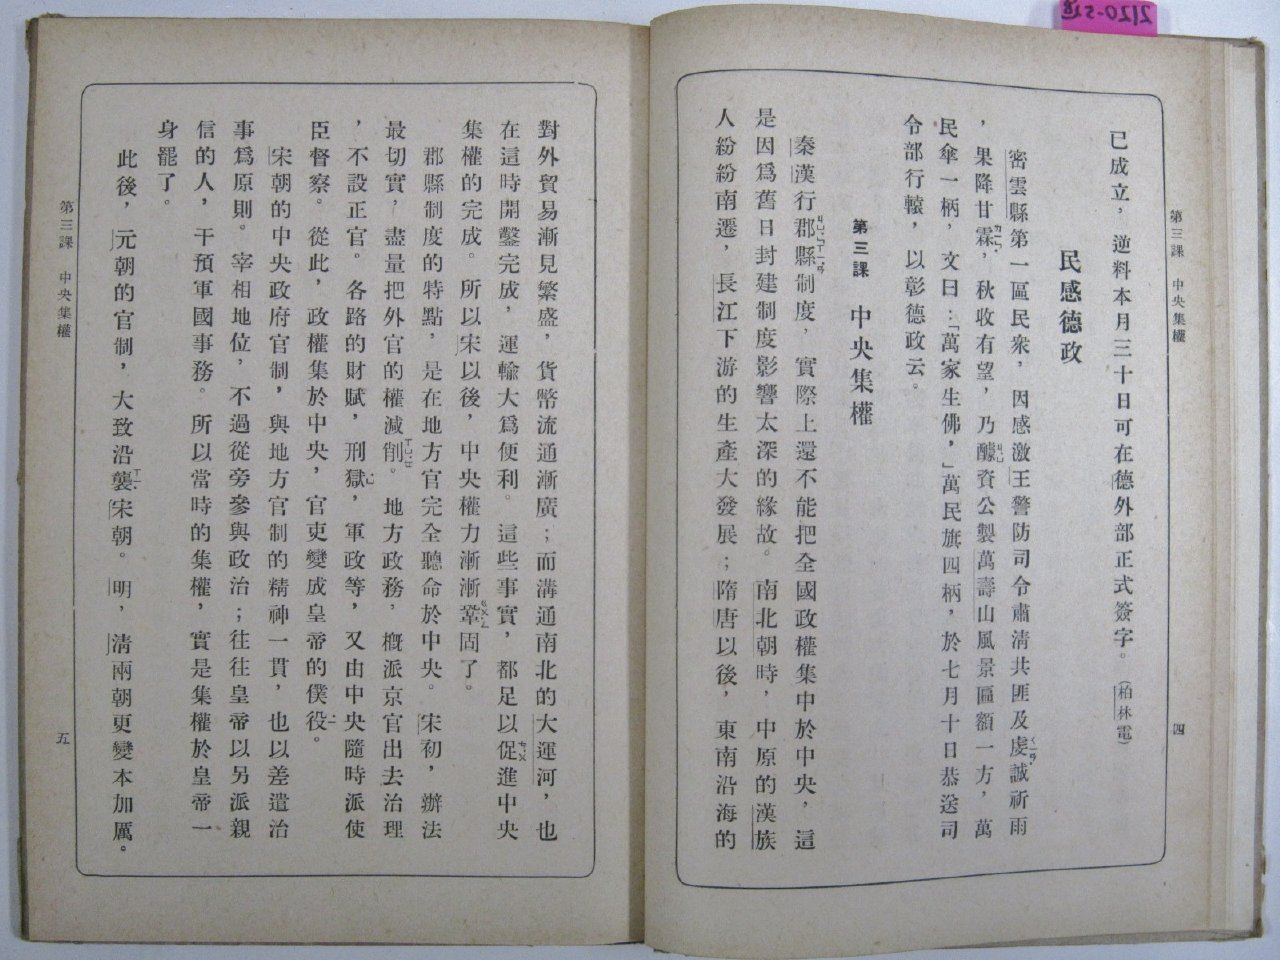 2120-518
第三課 中央集權
四
已成立，逆料本月三十日可在德外部正式簽字。（柏林電）
民感德政
密雲縣第一區民衆，因感激王警防司令肅清共匪及虔誠祈雨
，果降甘霖，秋收有望，乃醵資公製萬壽山風景匾額一方，萬
民傘一柄，文曰：「萬家生佛，」萬民旗四柄，於七月十日恭送司
令部行轅，以彰德政云。
第三課 中央集權
秦漢行郡縣制度，實際上還不能把全國政權集中於中央，這
是因爲舊日封建制度影響太深的緣故。南北朝時，中原的漢族
人紛紛南遷，長江下游的生產大發展；隋唐以後，東南沿海的
對外貿易漸見繁盛，貨幣流通漸廣；而溝通南北的大運河，也
在這時開鑿完成，運輸大爲便利。這些事實，都足以促進中央
集權的完成。所以宋以後，中央權力漸漸鞏固了。
郡縣制度的特點，是在地方官完全聽命於中央。宋初，辦法
最切實，盡量把外官的權減削。地方政務，概派京官出去治理
，不設正官。各路的財賦，刑獄，軍政等，又由中央隨時派使
臣督察。從此，政權集於中央，官吏變成皇帝的僕役。
宋朝的中央政府官制，與地方官制的精神一貫，也以差遣治
事爲原則。宰相地位，不過從旁參與政治；往往皇帝以另派親
信的人，干預軍國事務。所以當時的集權，實是集權於皇帝一
身罷了。
此後，元朝的官制，大致沿襲宋朝。明，清兩朝更變本加厲。
第三課 中央集權
五